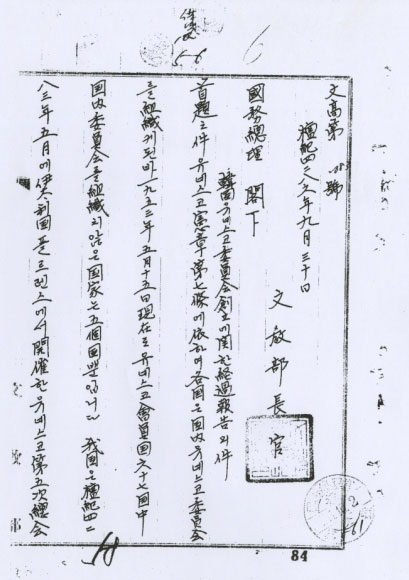 文高第 號
檀紀四二八六年九月三十日
文敎部長官
國務總理 閣下
韓國유네스코委員會創立에關한經過報告의件
首題의件유네스코憲章第七條에依하여各國은國內유네스코委員會
를組織케된바一九五三年五月十五日現在로유네스코會員國六十七個國中
國內委員會를組織지않은國家는五個國뿐입니다 我國은檀紀四二
八三年五月에伊太利国플로렌스에서開催한유네스코第五次總會
84